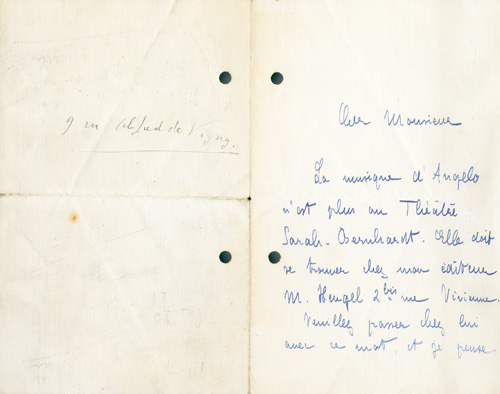 9 rue Alfred de Vigny.
Cher Monsieur
La musique d'Angelo
n'est plus au Théâtre
Sarah-Bernhardt. Elle doit
se trouver chez mon éditeur
M. Heugel 2 bis rue Vivienne.
Veuillez passer chez lui
avec ce mot, et je pense